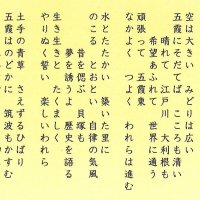 空は大きい みどりは広い
五霞にそだてば こころも清い
晴れて 江戸川 大利根も
希望あふれて 世界に通う
頑張って 五霞東
なかよく つよく われらは進む
水とたたかい 築いた里に
のこる とおとい 自律の気風
昔を偲ぶ 貝塚も
夢を誘うよ 歴史を語る
生き生きと たくましく
やりぬく誓い 楽しいわれら
土手の青草 さえずるひばり
五霞はのどかに 筑波もかすむ